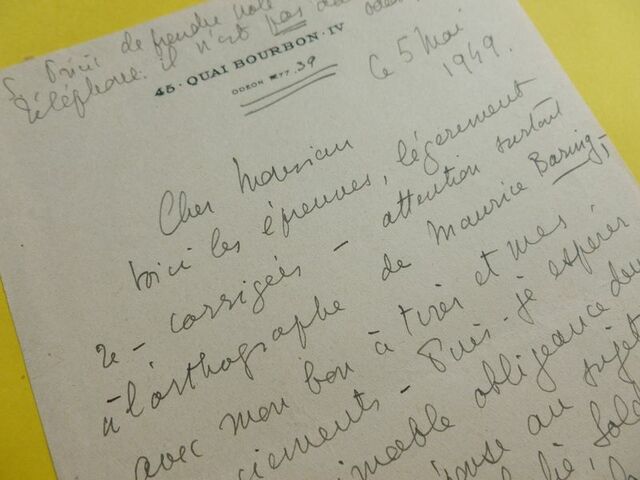 Prière de prendre note
téléphone. il n'est pas dans
45 · QUAI BOURBON · IV
ODEON 77.39
le 5 Mai
1949.
Cher Monsieur
Voici les épreuves, légèrement
re-corrigées - attention surtout
à l'orthographe de Maurice Baring,
avec mon bon à tirer et mes
ciements - Puis-je espérer
aimable obligeance de
ponse au sujet